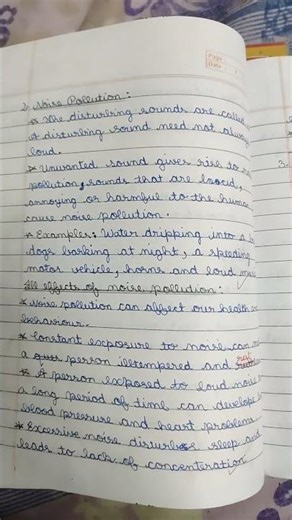 Page
Date
2) Noise Pollution :
* The disturbing sounds are called
A disturbing sound need not always
loud.
* Unwanted sound gives rise to
pollution, sounds that are loud,
annoying or harmful to the human
cause noise pollution.
* Examples: Water dripping into a
dogs barking at night, a speeding
motor vehicle, horns and loud music
Ill effects of noise pollution :
* Noise pollution can affect our health
behaviour.
* Constant exposure to noise can
a person illtempered and
* A person exposed to loud noise
a long period of time can develope
blood pressure and heart problems
* Excessive noise disturbs sleep and
leads to lack of concenteration
3.